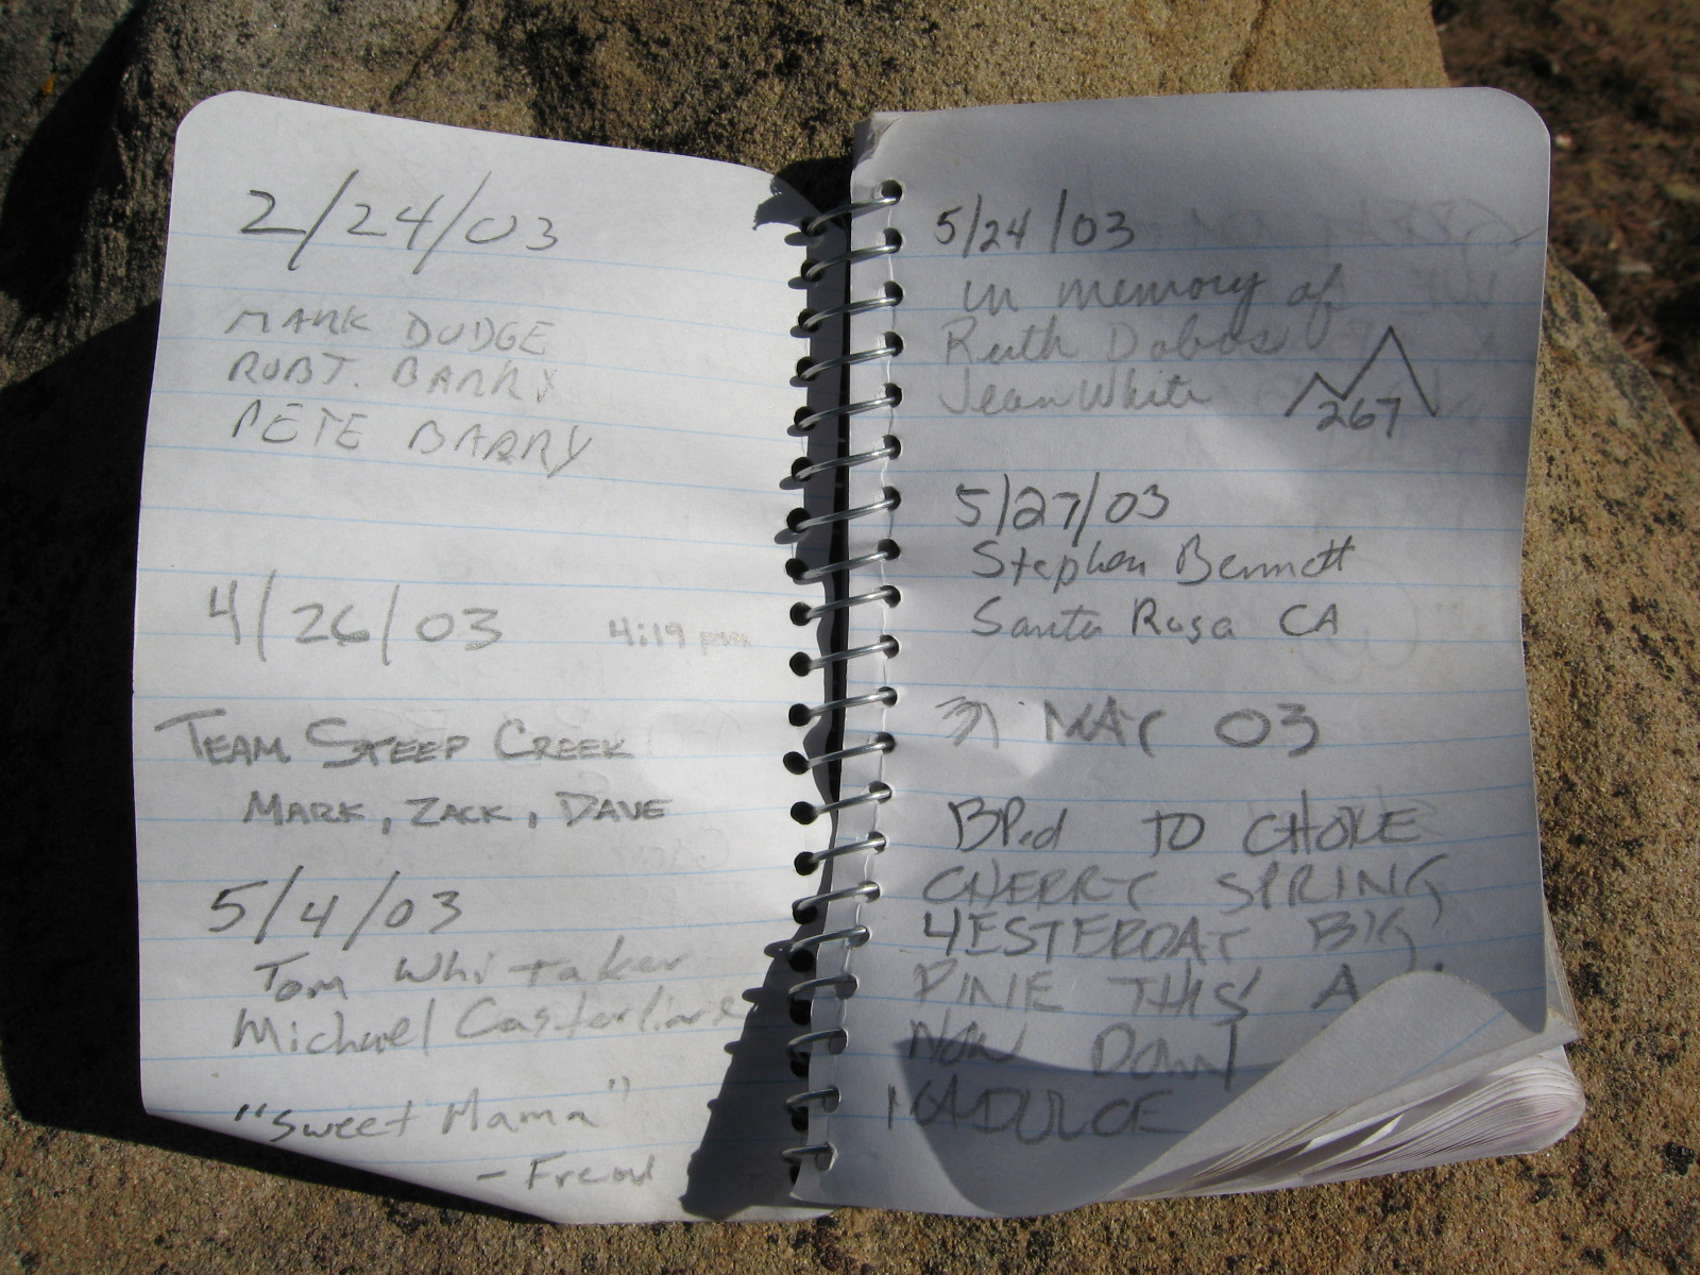 2/24/03
MARK DUDGE
ROBT. BARRY
PETE BARRY
4/26/03 4:19 pm
TEAM STEEP CREEK
MARK, ZACK, DAVE
5/4/03
Tom Whitaker
Michael Casterline
"Sweet Mama"
5/24/03
in memory of
Ruth Dobos
Jean White
267
5/27/03
Stephen Bennett
Santa Rosa CA
31 MAY 03
BP.d TO CHOKE
CHERRY SPRING
YESTERDAY BIG
PINE THIS A
NOW DOWN
MADULCE